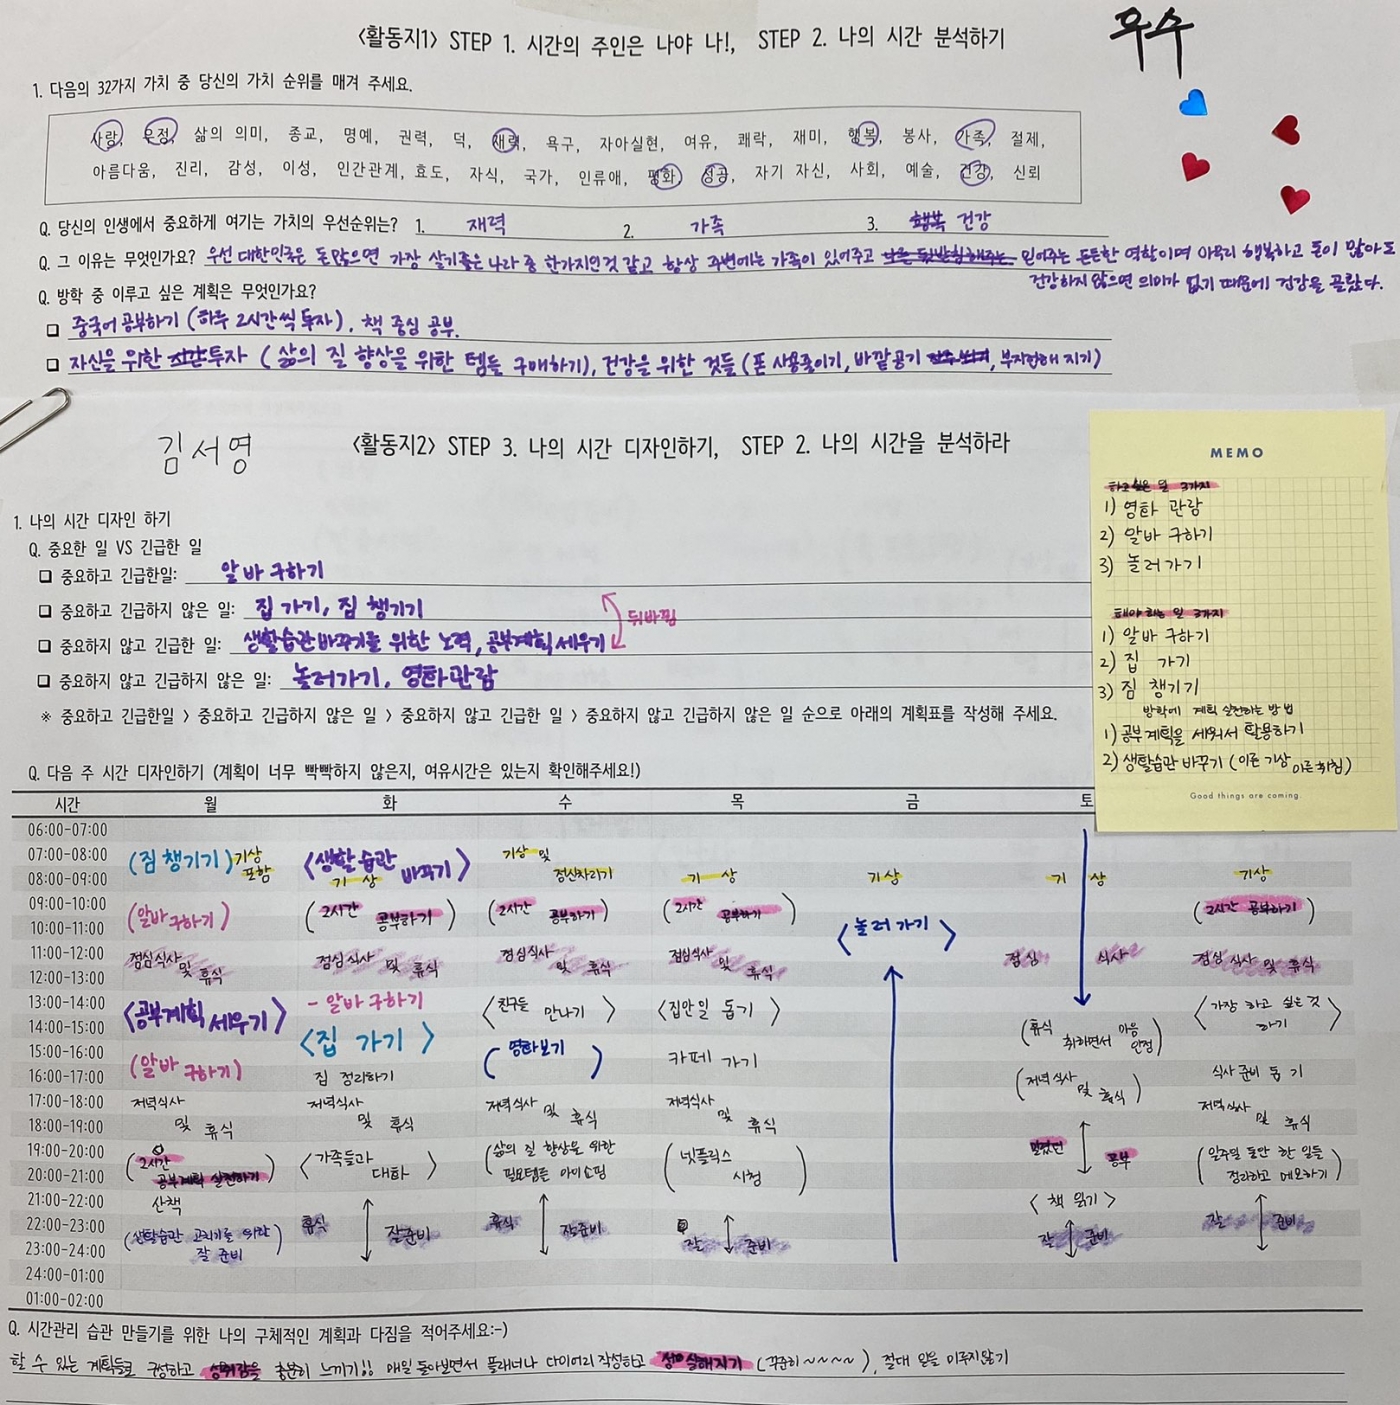 <활동지1> STEP 1. 시간의 주인은 나야 나!, STEP 2. 나의 시간 분석하기
우수
1. 다음의 32가지 가치 중 당신의 가치 순위를 매겨 주세요.
사랑, 우정, 삶의 의미, 종교, 명예, 권력, 덕, 재력, 욕구, 자아실현, 여유, 쾌락, 재미, 행복, 봉사, 가족, 절제,
아름다움, 진리, 감성, 이성, 인간관계, 효도, 자식, 국가, 인류애, 평화, 성공, 자기 자신, 사회, 예술, 건강, 신뢰
Q. 당신의 인생에서 중요하게 여기는 가치의 우선순위는? 1. 재력 2. 가족 3. 행복 건강
Q. 그 이유는 무엇인가요? 우선 대한민국은 돈많으면 가장 살기좋은 나라 중 한가지인것 같고 항상 주변에는 가족이 있어주고 믿어주는 든든한 역할이며 아무리 행복하고 돈이 많아도
건강하지 않으면 의미가 없기 때문에 건강을 골랐다.
Q. 방학 중 이루고 싶은 계획은 무엇인가요?
□ 중국어 공부하기 (하루 2시간씩 투자), 책 중심 공부.
□ 자신을 위한 시간 투자 ( 삶의 질 향상을 위한 템들 구매하기), 건강을 위한 것들 (폰 사용줄이기, 바깥공기, 부지런해 지기)
김서영
<활동지2> STEP 3. 나의 시간 디자인하기, STEP 2. 나의 시간을 분석하라
1. 나의 시간 디자인 하기
Q. 중요한 일 VS 긴급한 일
□ 중요하고 긴급한일: 알바 구하기
□ 중요하고 긴급하지 않은 일: 집 가기, 짐 챙기기
뒤바뀜
□ 중요하지 않고 긴급한 일: 생활습관바꾸기를 위한 노력, 공부계획 세우기
□ 중요하지 않고 긴급하지 않은 일: 놀러가기, 영화관람
※ 중요하고 긴급한일 > 중요하고 긴급하지 않은 일 > 중요하지 않고 긴급한 일 > 중요하지 않고 긴급하지 않은 일 순으로 아래의 계획표를 작성해 주세요.
MEMO
하고 싶은 일 3가지
1) 영화 관람
2) 알바 구하기
3) 놀러가기
해야 하는 일 3가지
1) 알바 구하기
2) 집 가기
3) 짐 챙기기
방학에 계획 실천하는 방법
1) 공부계획을 세워서 활용하기
2) 생활습관 바꾸기 (이른 기상 이른 취침)
Good things are coming.
Q. 다음 주 시간 디자인하기 (계획이 너무 빡빡하지 않은지, 여유시간은 있는지 확인해주세요!)
시간 월 화 수 목 금 토
06:00-07:00
07:00-08:00 (짐 챙기기) 기상 포함 <생활습관 바꾸기> 기상 및
08:00-09:00 기상 정신차리기 기상 기상 기상 기상
09:00-10:00 (알바 구하기) (2시간 공부하기) (2시간 공부하기) (2시간 공부하기) (2시간 공부하기)
10:00-11:00 <놀러 가기>
11:00-12:00 점심식사 및 휴식 점심식사 및 휴식 점심식사 및 휴식 점심식사 및 휴식 점심 식사 점심 식사 및 휴식
12:00-13:00
13:00-14:00 <공부계획 세우기> - 알바 구하기 <친구들 만나기> <집안일 돕기> <가장 하고 싶은 것 하기>
14:00-15:00 <집 가기> (휴식 취하면서 마음 안정)
15:00-16:00 (알바 구하기) (영화보기) 카페 가기
16:00-17:00 집 정리하기 (저녁식사 및 휴식) 식사 준비 돕기
17:00-18:00 저녁식사 및 휴식 저녁식사 및 휴식 저녁식사 및 휴식 저녁식사 및 휴식 저녁식사 및 휴식
18:00-19:00
19:00-20:00 (2시간 공부계획 실천하기) <가족들과 대화> (삶의 질 향상을 위한 필요템들 아이쇼핑) (넷플릭스 시청) 밀렸던 공부 (일주일 동안 한 일들 정리하고 메모하기)
20:00-21:00
21:00-22:00 산책 < 책 읽기 >
22:00-23:00 (생활습관 고치기를 위한 잘 준비) 휴식 잘준비 휴식 잘준비 잘 준비 잘 준비 잘 준비
23:00-24:00
24:00-01:00
01:00-02:00
Q. 시간관리 습관 만들기를 위한 나의 구체적인 계획과 다짐을 적어주세요:-)
할 수 있는 계획들로 구성하고 성취감을 충분히 느끼기!! 매일 돌아보면서 플래너나 다이어리 작성하고 성실해지기 (꾸준히~~~~), 절대 일을 미루지않기